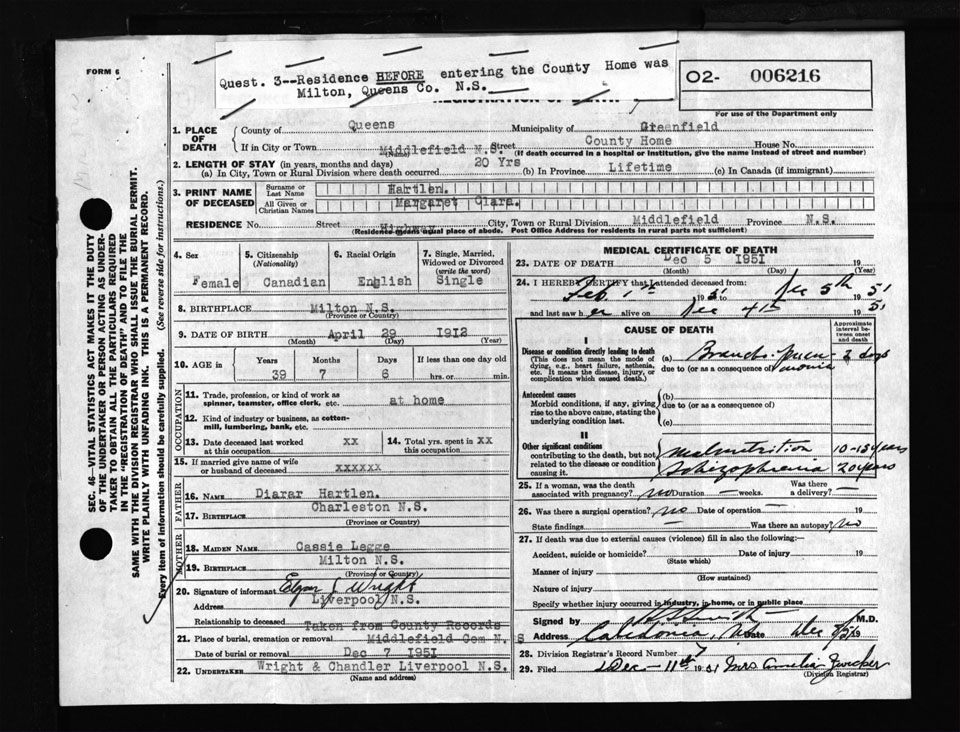 FORM 6
Quest. 3--Residence BEFORE entering the County Home was
Milton, Queens Co. N.S.
O2- 006216
For use of the Department only
SEC. 46—VITAL STATISTICS ACT MAKES IT THE DUTY
OF THE UNDERTAKER OR PERSON ACTING AS UNDER-
TAKER TO OBTAIN ALL THE PARTICULARS REQUIRED
IN THE "REGISTRATION OF DEATH" AND TO FILE THE
SAME WITH THE DIVISION REGISTRAR WHO SHALL ISSUE THE BURIAL PERMIT.
WRITE PLAINLY WITH UNFADING INK. THIS IS A PERMANENT RECORD.
Every item of information should be carefully supplied. (See reverse side for instructions.)
1. PLACE OF DEATH
County of Queens Municipality of Greenfield
If in City or Town Middlefield N.S. Street County Home House No.
(Name) (If death occurred in a hospital or institution, give the name instead of street and number)
2. LENGTH OF STAY (in years, months and days)
(a) In City, Town or Rural Division where death occurred 20 Yrs (b) In Province Lifetime (c) In Canada (if immigrant)
3. PRINT NAME OF DECEASED
Surname or Last Name Hartlen.
All Given or Christian Names Margaret Clara.
RESIDENCE No. Street Highway City, Town or Rural Division Middlefield Province N.S.
(Residence means equal place of abode. Post Office Address for residents in rural parts not sufficient)
4. Sex Female
5. Citizenship (Nationality) Canadian
6. Racial Origin English
7. Single, Married, Widowed or Divorced (write the word) Single
8. BIRTHPLACE Milton N.S.
(Province or Country)
9. DATE OF BIRTH April 29 1912
(Month) (Day) (Year)
10. AGE in Years Months Days If less than one day old
39 7 6 hrs. or min.
OCCUPATION
11. Trade, profession, or kind of work as spinner, teamster, office clerk, etc. at home
12. Kind of industry or business, as cotton-mill, lumbering, bank, etc.
13. Date deceased last worked at this occupation xx
14. Total yrs. spent in this occupation xx
15. If married give name of wife or husband of deceased xxxxxx
FATHER
16. NAME Diarar Hartlen.
17. BIRTHPLACE Charleston N.S.
(Province or Country)
MOTHER
18. MAIDEN NAME Cassie Legge
19. BIRTHPLACE Milton N.S.
(Province or Country)
20. Signature of informant Wright
Address Liverpool N.S.
Relationship to deceased Taken from County Records
21. Place of burial, cremation or removal Middlefield Cem N.S
Date of burial or removal Dec 7 1951
22. UNDERTAKER Wright & Chandler Liverpool N.S.
(Name and address)
MEDICAL CERTIFICATE OF DEATH
23. DATE OF DEATH Dec 5 1951 19
(Month) (Day) (Year)
24. I HEREBY CERTIFY that I attended deceased from:
Feb 1st 1951 Dec 5th 1951
and last saw her alive on Dec 4th 1951
CAUSE OF DEATH
Approximate interval between onset and death
I
Disease or condition directly leading to death
(This does not mean the mode of dying, e.g., heart failure, asthenia, etc. It means the disease, injury, or complication which caused death.)
(a) Broncho pneumonia 2 days
due to (or as a consequence of)
Antecedent causes
Morbid conditions, if any, giving rise to the above cause, stating the underlying condition last.
(b)
due to (or as a consequence of)
(c)
II
Other significant conditions
contributing to the death, but not related to the disease or condition causing it.
Malnutrition 10-15 years
Schizophrenia 20 years
25. If a woman, was the death associated with pregnancy? no Duration — weeks. Was there a delivery? —
26. Was there a surgical operation? no Date of operation — 19
State findings — Was there an autopsy? no
27. If death was due to external causes (violence) fill in also the following:—
Accident, suicide or homicide? Date of injury 19
(State which)
Manner of injury
(How sustained)
Nature of injury
Specify whether injury occurred in industry, in home, or in public place
Signed by Smith M.D.
Address Caledonia, Date Dec 19
28. Division Registrar's Record Number 7
29. Filed Dec - 11th 1951 Mrs Amelia Zwicker
(Division Registrar)